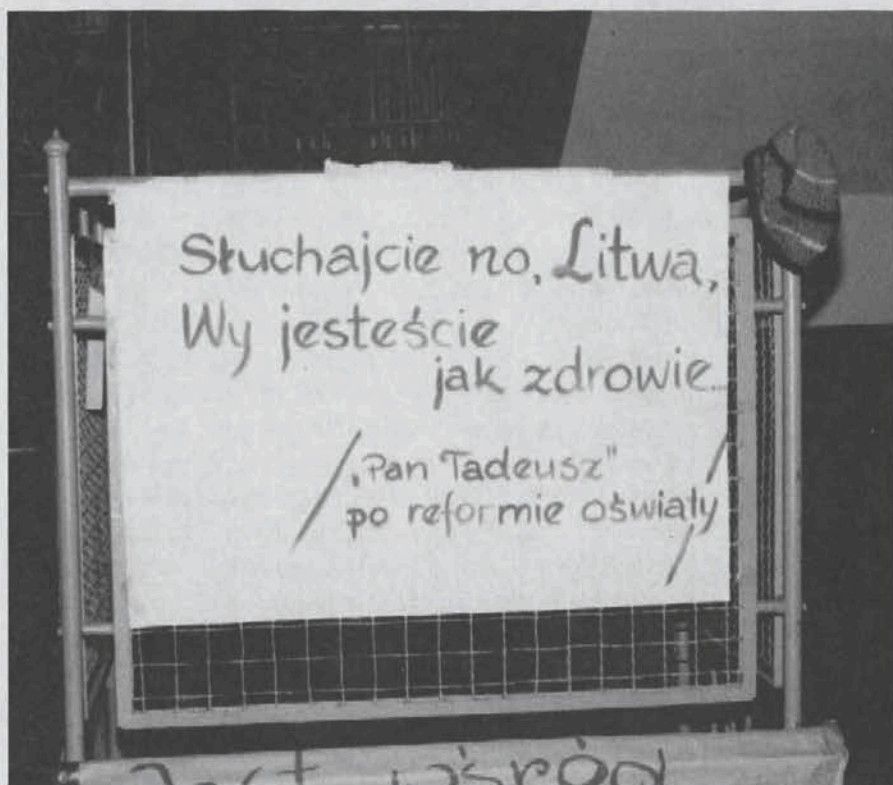 Słuchajcie no, Litwa,
Wy jesteście
jak zdrowie...
/„Pan Tadeusz"
po reformie oświaty/
Jest wśród